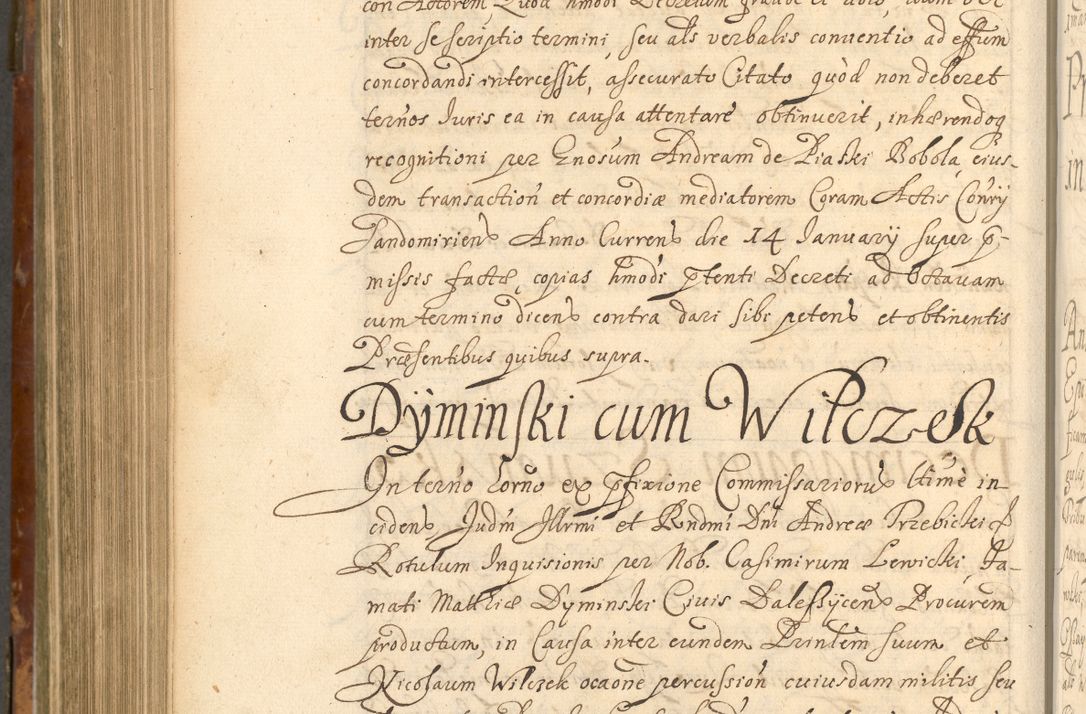 inter se scriptio termini, seu als verbalis conventio ad effum
concordandi intercessit, assecurato Citato quòd non deberet
ternos Iuris ea in causa attentare obtinuerit, inhærendoq
recognitioni per Enosum Andream de Piaski Bobola, eius-
dem transaction et concordiæ mediatorem Coram Actis Conrÿ
Sandomiriens Anno Currens die 14 Ianuarÿ super p-
missis factæ, copias hmodi ptenti Decreti ad Octavam
cum termino dicens contra dari sibi petens et obtinentis
Præsentibus quibus supra.
Dÿminski cum Wilczek
In terno horno ex pfixione Commissariorus ltime in-
cidens Judm Illrmi et Rndmi Dni Andreæ Trzebicki
Rotulum Inquisionis per Nob. Casimirum Lewicki, Fa-
mati Mathiæ Dyminski Civis Dalessÿcens Procurem
productum, in Causa inter eundem Prinlem suum et
Nicolaum Wilczek ocaone percussion cuiusdam militis seu